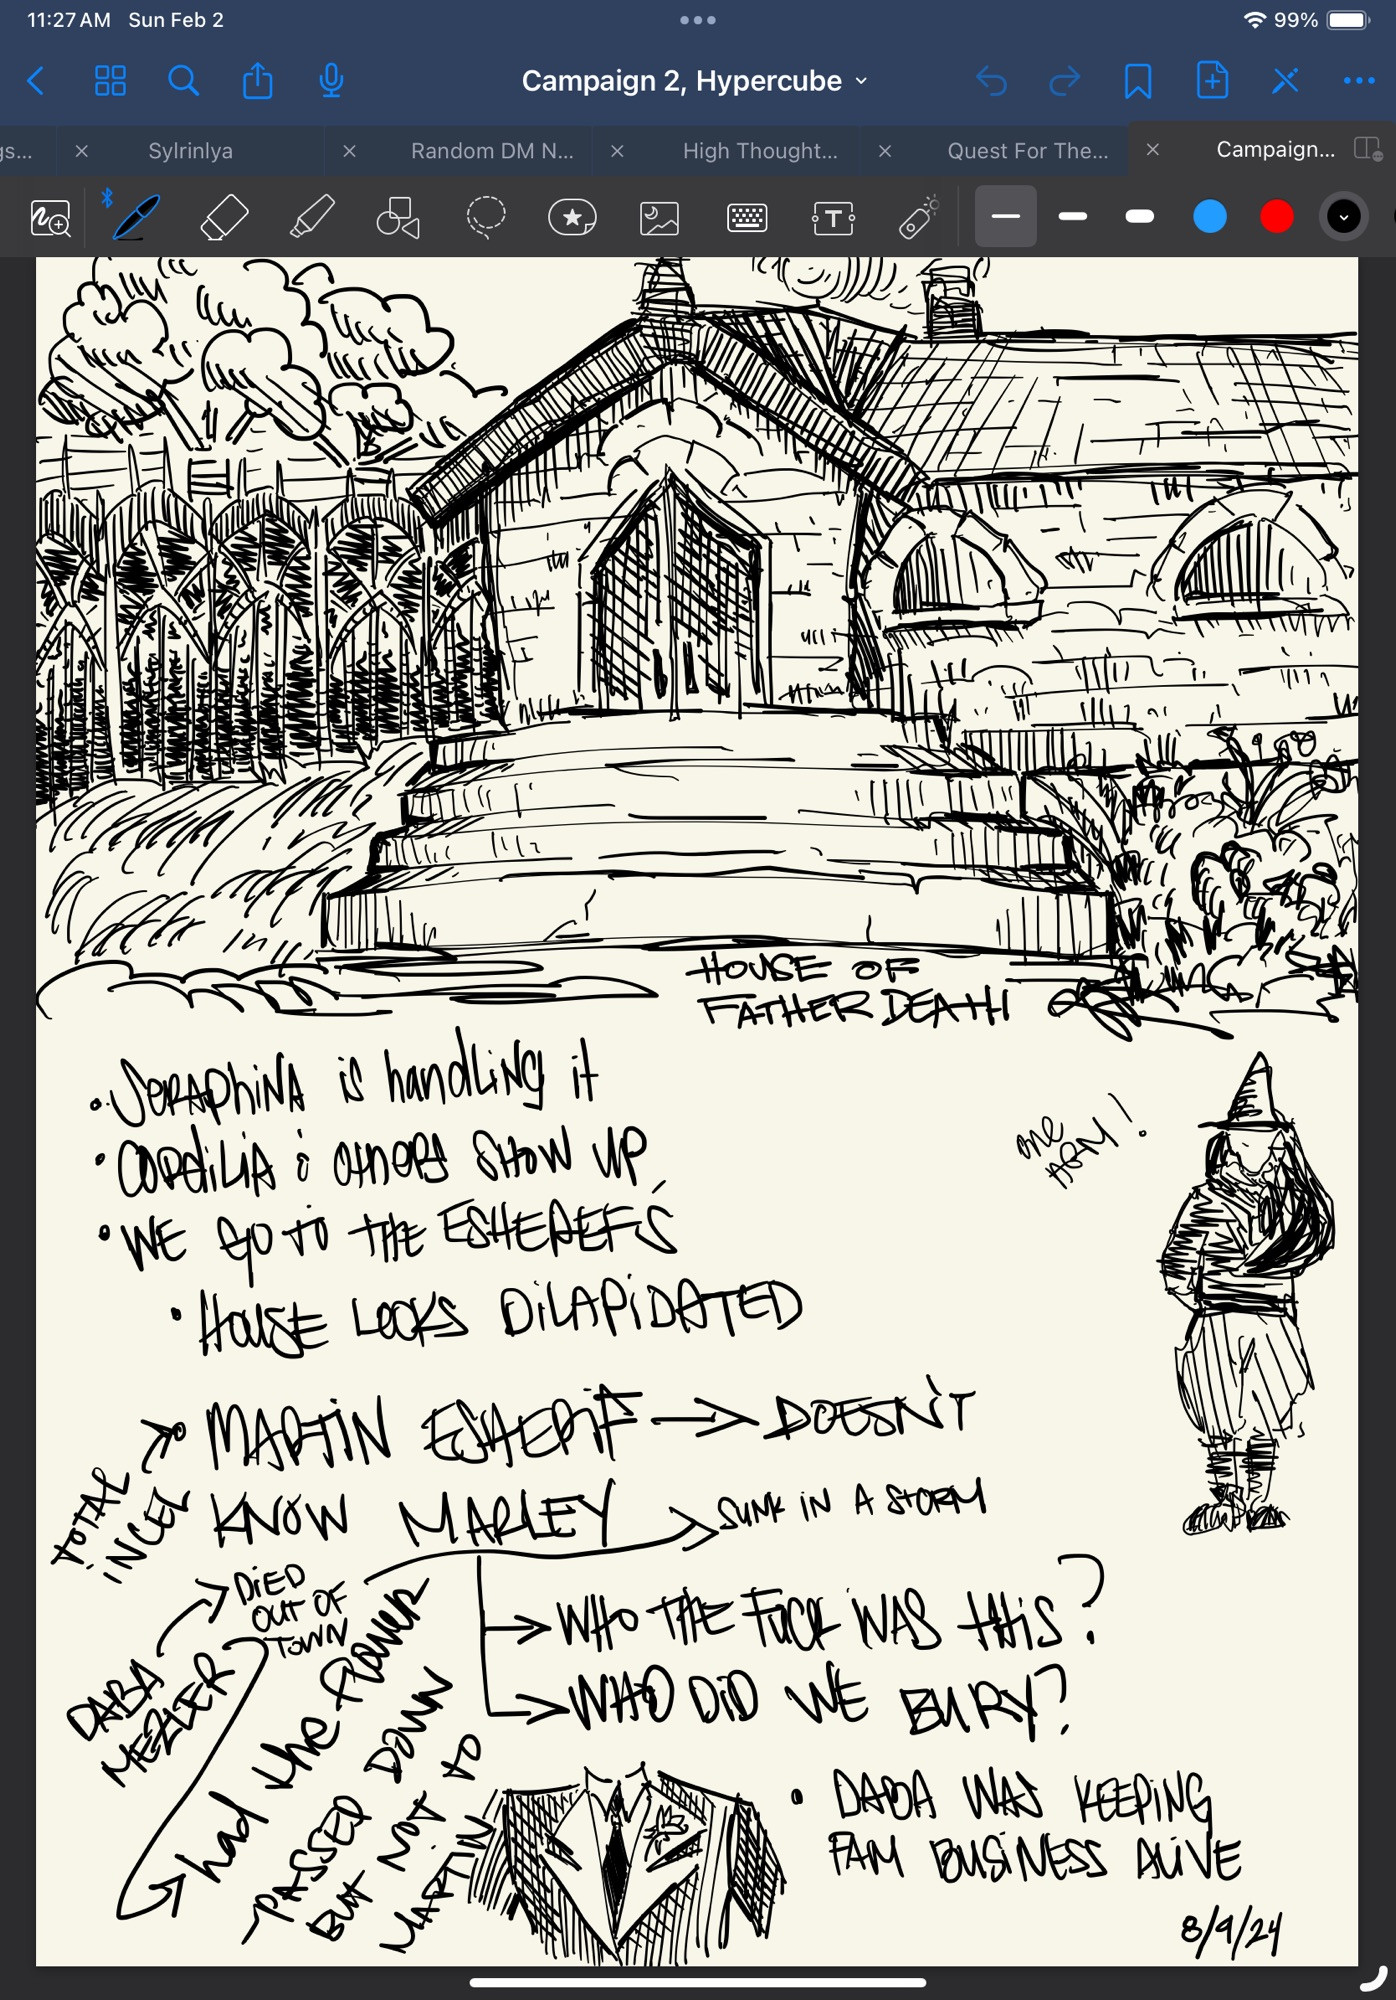 11:27 AM Sun Feb 2
99%
Campaign 2, Hypercube
gs...
Sylrinlya
Random DM N...
High Thought...
Quest For The...
Campaign...
HOUSE OF
FATHER DEATH
• SERAPHINA is handling it
• CORDILIA & others SHOW UP
• WE GO TO THE ESHEREF'S
• HOUSE LOOKS DILAPIDATED
one
ARM!
MARTIN ESHERIF → DOESN'T
KNOW MARLEY
TOTAL
INCEL
SUNK IN A STORM
DIED
OUT OF
TOWN
DABA
MEZLER
had the flower
PASSED DOWN
BUT NOT TO
MARTIN
WHO THE FUCK WAS this?
WHO DID WE BURY?
• DABA WAS KEEPING
FAM BUSINESS ALIVE
8/9/24